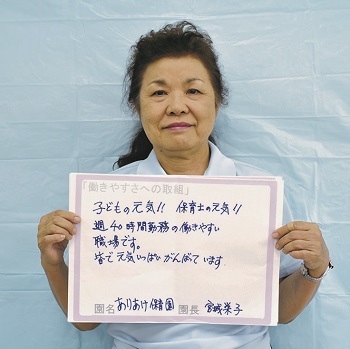 「働きやすさへの取組」
子どもの元気!! 保育士の元気!!
週40時間勤務の働きやすい
職場です。
皆で元気いっぱいがんばっています。
園名 ありあけ保育園 園長 宮城栄子